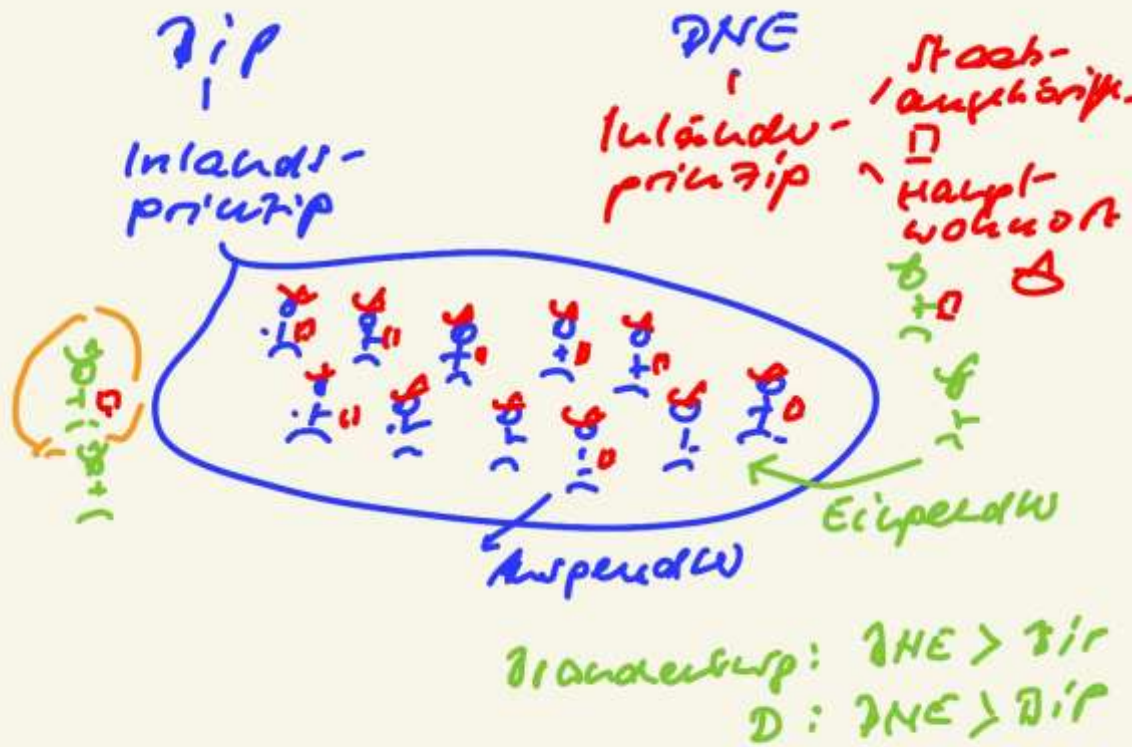 BIP
BNE
Inlands-
prinzip
Inländer-
prinzip
Staats-
angehörigk.
Haupt-
wohnort
Einpendler
Auspendler
Brandenburg: BNE > BIP
D: BNE > BIP